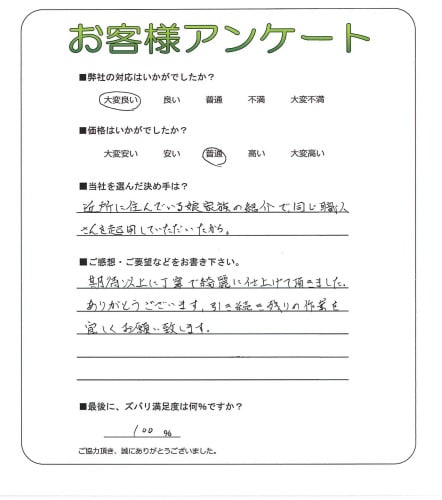 お客様アンケート
■弊社の対応はいかがでしたか?
大変良い 良い 普通 不満 大変不満
■価格はいかがでしたか?
大変安い 安い 普通 高い 大変高い
■当社を選んだ決め手は?
近所に住んでいる娘家族の紹介で、同じ職人
さんを起用していただいたから。
■ご感想・ご要望などをお書き下さい。
期待以上に丁寧で綺麗に仕上げて頂きました。
ありがとうございます。引き続き残りの作業を
宜しくお願い致します。
■最後に、ズバリ満足度は何%ですか?
100 %
ご協力頂き、誠にありがとうございました。